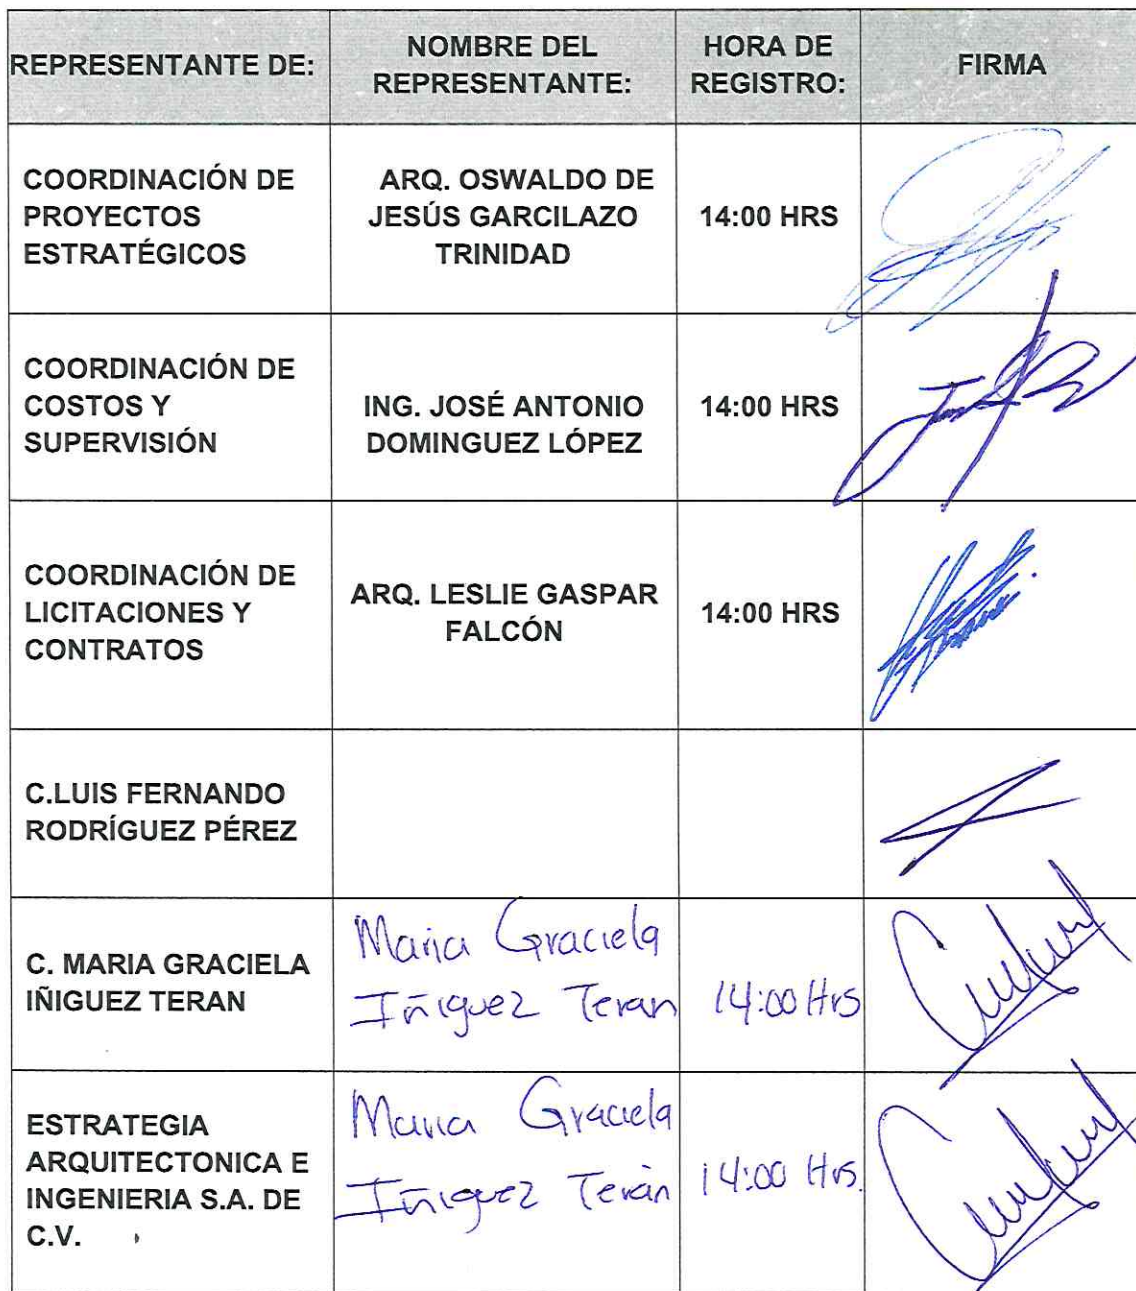 REPRESENTANTE DE:
NOMBRE DEL
REPRESENTANTE:
HORA DE
REGISTRO:
FIRMA
COORDINACIÓN DE
PROYECTOS
ESTRATÉGICOS
ARQ. OSWALDO DE
JESÚS GARCILAZO
TRINIDAD
14:00 HRS
COORDINACIÓN DE
COSTOS Y
SUPERVISIÓN
ING. JOSÉ ANTONIO
DOMINGUEZ LÓPEZ
14:00 HRS
COORDINACIÓN DE
LICITACIONES Y
CONTRATOS
ARQ. LESLIE GASPAR
FALCÓN
14:00 HRS
C.LUIS FERNANDO
RODRÍGUEZ PÉREZ
C. MARIA GRACIELA
IÑIGUEZ TERAN
Maria Graciela
Iñiguez Teran
14:00 Hrs
ESTRATEGIA
ARQUITECTONICA E
INGENIERIA S.A. DE
C.V.
Maria Graciela
Iñiguez Terán
14:00 Hrs.